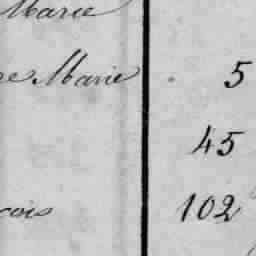 Marie
Marie 5
45
102